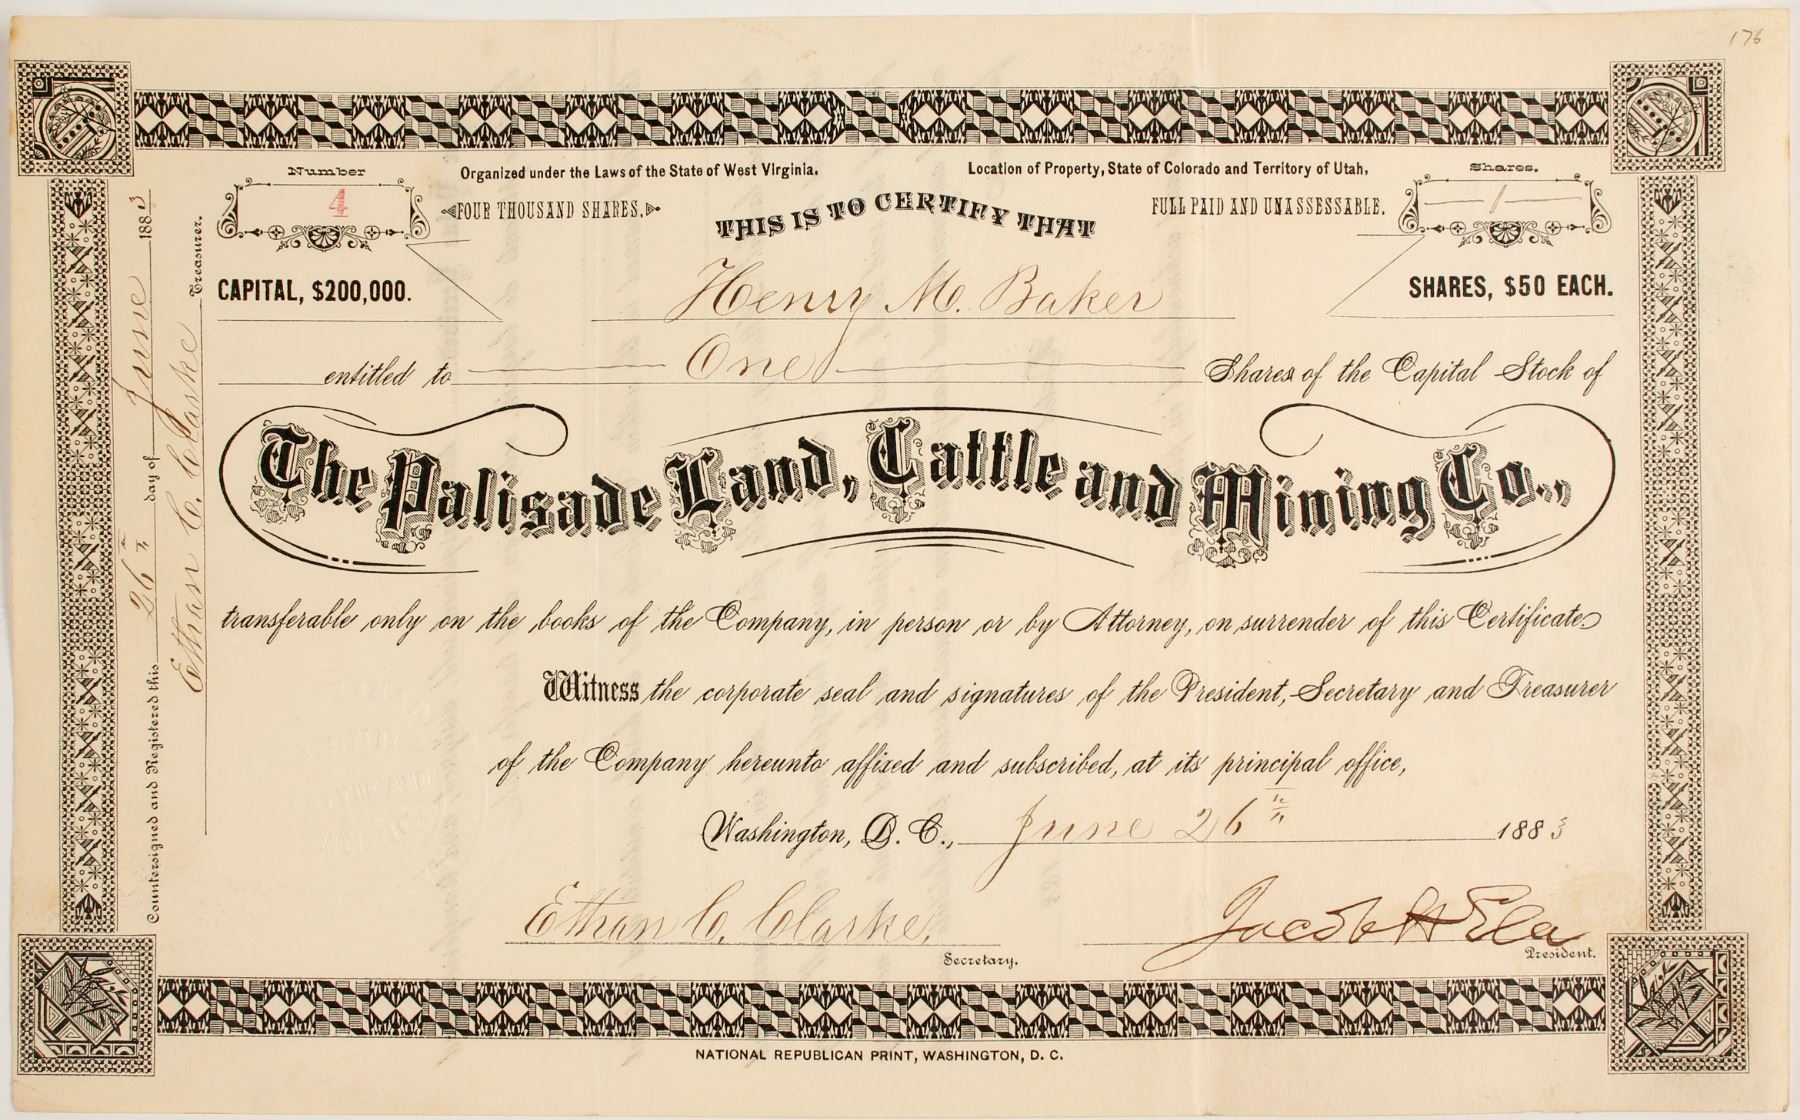 176
Number
4
Organized under the Laws of the State of West Virginia.
Location of Property, State of Colorado and Territory of Utah,
Shares.
1
FOUR THOUSAND SHARES.
THIS IS TO CERTIFY THAT
FULL PAID AND UNASSESSABLE.
CAPITAL, $200,000.
Henry M. Baker
SHARES, $50 EACH.
entitled to One Shares of the Capital Stock of
The Palisade Land, Cattle and Mining Co.,
transferable only on the books of the Company, in person or by Attorney, on surrender of this Certificate
Witness the corporate seal and signatures of the President, Secretary and Treasurer
of the Company hereunto affixed and subscribed, at its principal office,
Washington, D. C., June 26th 1883
Ethan C. Clarke.
Secretary.
Jacob H Ela
President.
Countersigned and Registered this 26th day of June 1883
Ethan C. Clarke Treasurer.
NATIONAL REPUBLICAN PRINT, WASHINGTON, D. C.